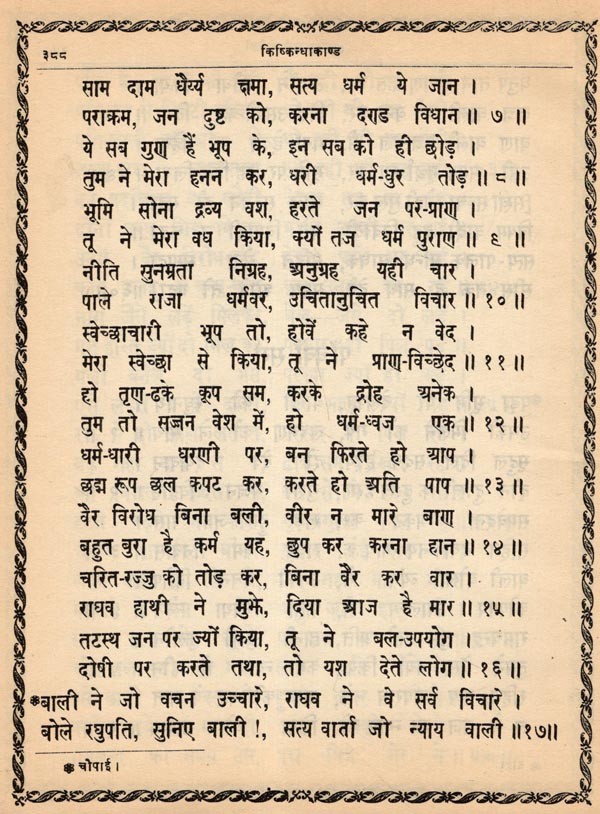 ३८८
किष्किन्धाकाण्ड
साम दाम धैर्य्य क्षमा, सत्य धर्म ये जान ।
पराक्रम, जन दुष्ट को, करना दण्ड विधान ॥ ७ ॥
ये सब गुण हैं भूप के, इन सब को ही छोड़ ।
तुम ने मेरा हनन कर, धरी धर्म-धुर तोड़ ॥ ८ ॥
भूमि सोना द्रव्य वश, हरते जन पर-प्राण ।
तू ने मेरा वध किया, क्यों तज धर्म पुराण ॥ ९ ॥
नीति सुनम्रता निग्रह, अनुग्रह यही चार ।
पाले राजा धर्मवर, उचितानुचित विचार ॥ १० ॥
स्वेच्छाचारी भूप तो, होवें कहे न वेद ।
मेरा स्वेच्छा से किया, तू ने प्राण-विच्छेद ॥ ११ ॥
हो तृण-ढके कूप सम, करके द्रोह अनेक ।
तुम तो सज्जन वेश में, हो धर्म-ध्वज एक ॥ १२ ॥
धर्म-धारी धरणी पर, बन फिरते हो आप ।
छद्म रूप छल कपट कर, करते हो अति पाप ॥ १३ ॥
वैर विरोध बिना बली, वीर न मारे बाण ।
बहुत बुरा है कर्म यह, छुप कर करना हान ॥ १४ ॥
चरित-रज्जु को तोड़ कर, बिना वैर कर वार ।
राघव हाथी ने मुझे, दिया आज है मार ॥ १५ ॥
तटस्थ जन पर ज्यों किया, तू ने बल-उपयोग ।
दोषी पर करते तथा, तो यश देते लोग ॥ १६ ॥
*बाली ने जो वचन उच्चारे, राघव ने वे सर्व विचारे ।
बोले रघुपति, सुनिए बाली !, सत्य वार्ता जो न्याय वाली ॥१७॥
* चोपाई ।